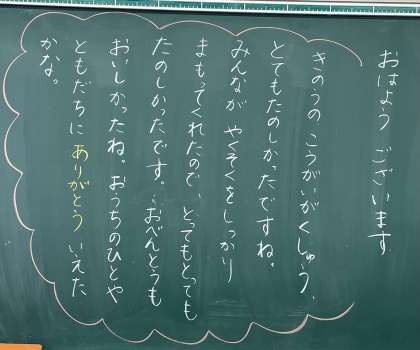 おはよう ございます
きのうの こうがいがくしゅう、
とてもたのしかったですね。
みんなが やくそくをしっかり
まもってくれたので、とってもとっても
たのしかったです。おべんとうも
おいしかったね。おうちのひとや
ともだちに ありがとう いえた
かな。